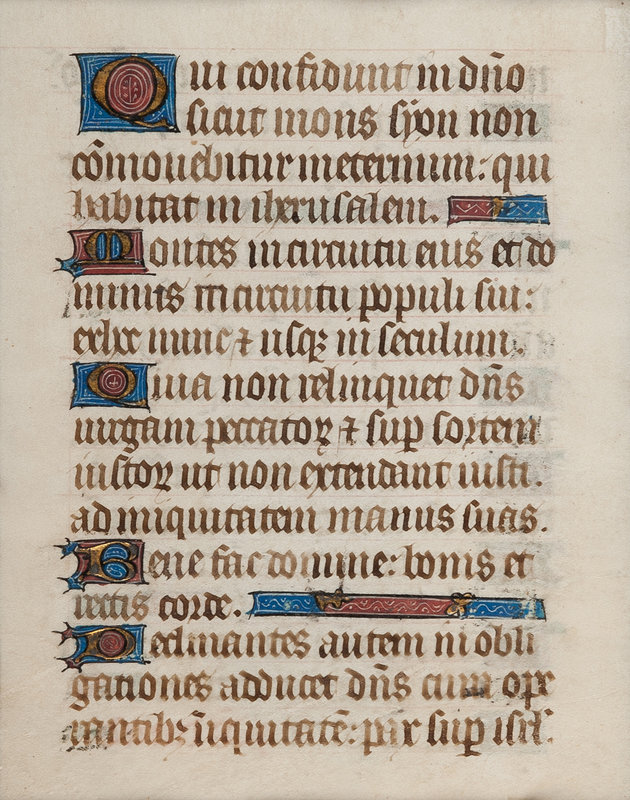 Qui confidunt in dño
sicut mons syon non
cōmouebitur in eternum: qui
habitat in iherusalem.
Montes in circuitu eius et do
minus in circuitu populi sui:
ex hoc nunc ⁊ usqꝫ in seculum.
Quia non relinquet dñs
uirgam peccatoꝝ ⁊ suꝑ sortem
iustoꝝ ut non extendant iusti.
ad iniquitatem manus suas.
Bene fac domine: bonis et
rectis corde.
Declinantes autem in obli
gationes adducet dñs cum ope
rantibꝫ īiquitatē: pax suꝑ isrl.